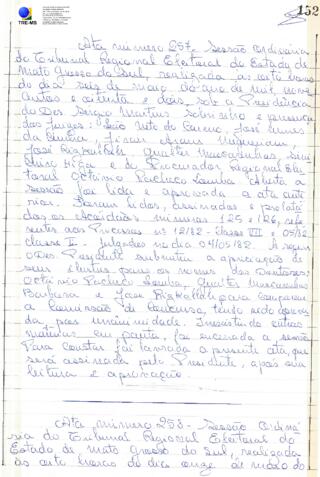 152
TRE-MS
Ata número 257. Sessão Ordinária
do Tribunal Regional Eleitoral do Estado de
Mato Grosso do Sul, realizada às oito horas
do dia seis de maio do ano de mil nove
centos e oitenta e dois, sob a Presidência
do Des. Sergio Martins Sobrinho e presença
dos Juízes: José Nunes
da Cunha,
José Rizkallah,
e Procurador Regional Elei
toral Octávio Pacheco Lomba. Aberta a
sessão foi lida e aprovada a ata ante
rior. Foram lidos, assinados e
os os Acórdãos números 125 e 126, refe
rentes aos Processos nºs 12/82 - Classe VII e 05/82
classe II - julgados no dia 04/05/82. A seguir
o Des. Presidente submeteu a apreciação de
seus os nomes dos Doutores:
Octávio Pacheco Lomba,
Barbosa e José Rizkallah para comporem
a Comissão de Concurso, tendo sido aprova
da por unanimidade. Inexistindo outras
matérias em pauta, foi encerrada a sessão.
Para constar foi lavrada a presente ata, que
será assinada pelo Presidente, após sua
leitura e aprovação.
Ata número 258 - Sessão Ordiná
ria do Tribunal Regional Eleitoral do
Estado de Mato Grosso do Sul, realizada
às oito horas do dia onze de maio do